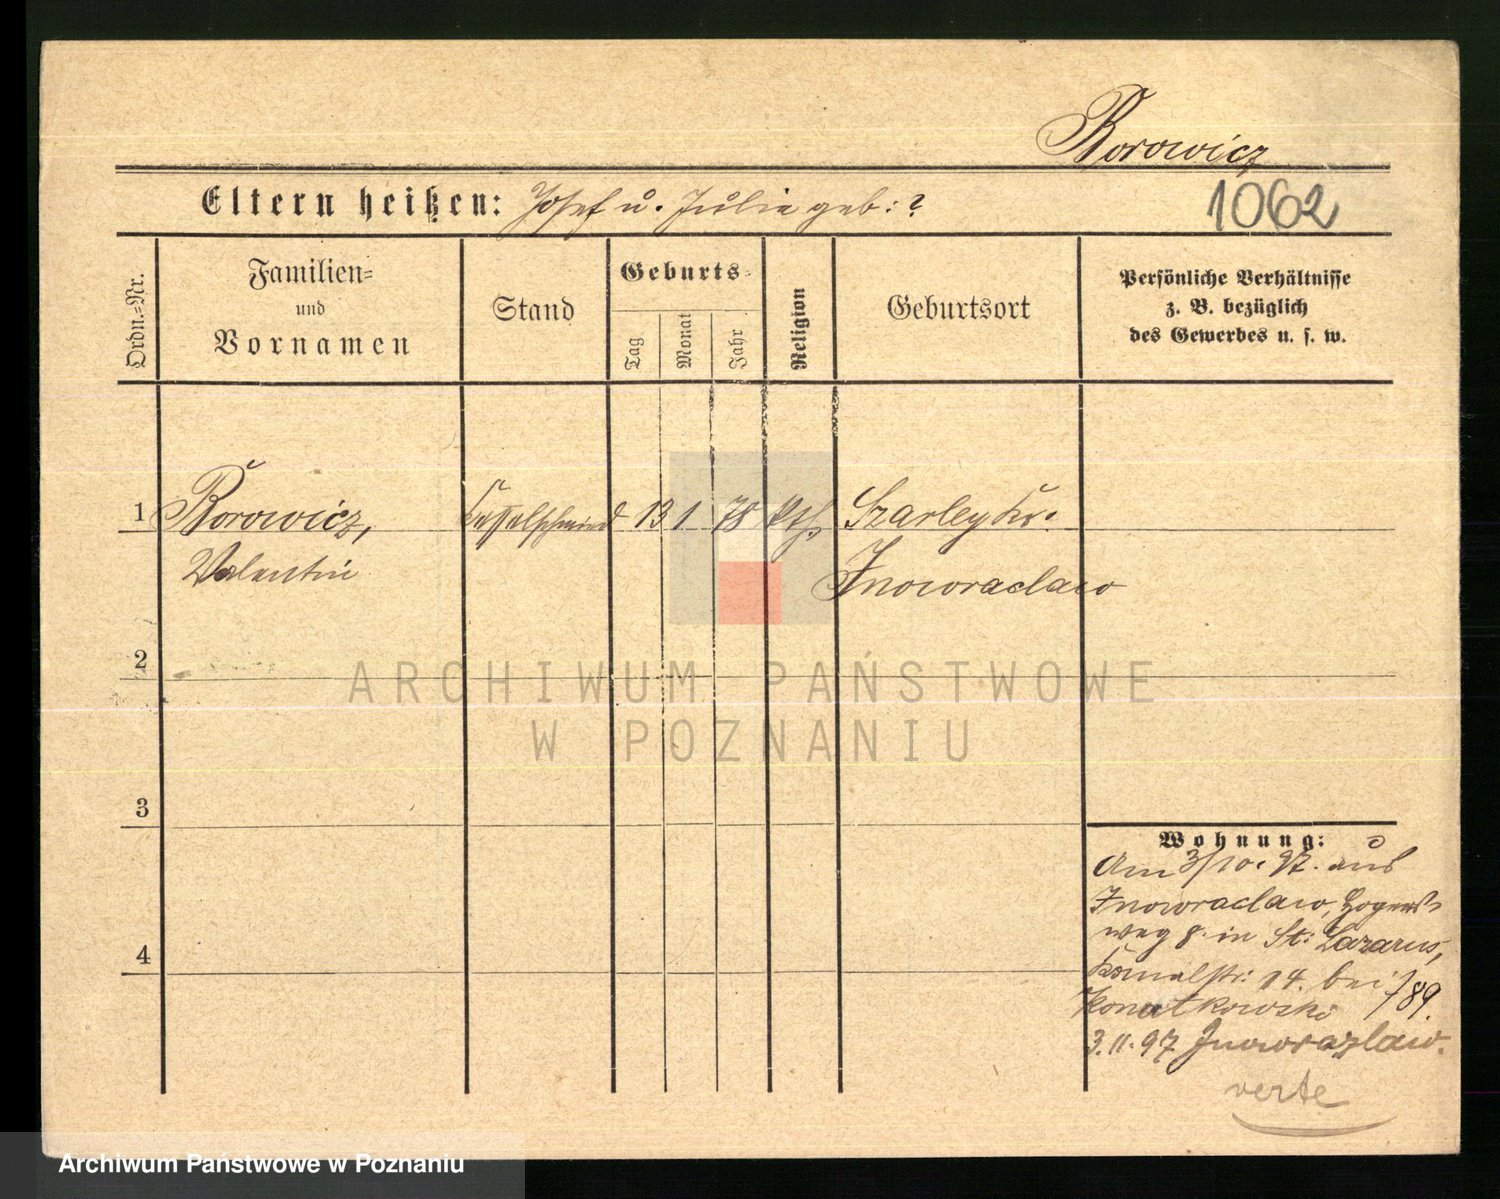 Borowicz
Eltern heißen: Josef u. Julie geb: ?
1062
Ordn.-Nr.
Familien-
und
Vornamen
Stand
Geburts-
Tag
Monat
Jahr
Religion
Geburtsort
Persönliche Verhältnisse
z. B. bezüglich
des Gewerbes u. s. w.
1 Borowicz, Kesselschmied 13 1 78 kth. Szarley Kr.
Valentin Inowraclaw
2
ARCHIWUM PAŃSTWOWE
W POZNANIU
3
4
Wohnung:
Am 3/10. 97. aus
Inowraclaw,
weg 8 in St: Lazarus,
14. bei
789.
3.11.97 Inowrazlaw.
verte
Archiwum Państwowe w Poznaniu